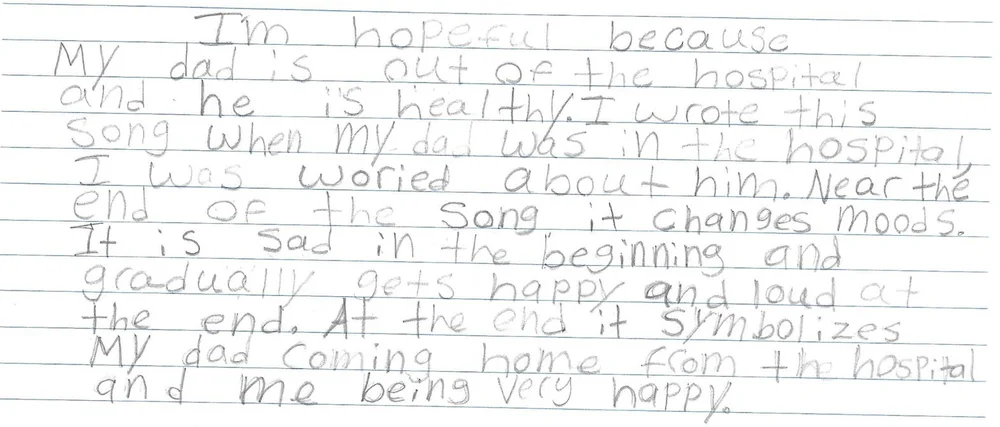 I'm hopeful because
My dad is out of the hospital
and he is healthy. I wrote this
song when my dad was in the hospital,
I was woried about him. Near the
end of the song it changes moods.
It is sad in the beginning and
gradually gets happy and loud at
the end. At the end it symbolizes
My dad coming home from the hospital
and me being very happy.